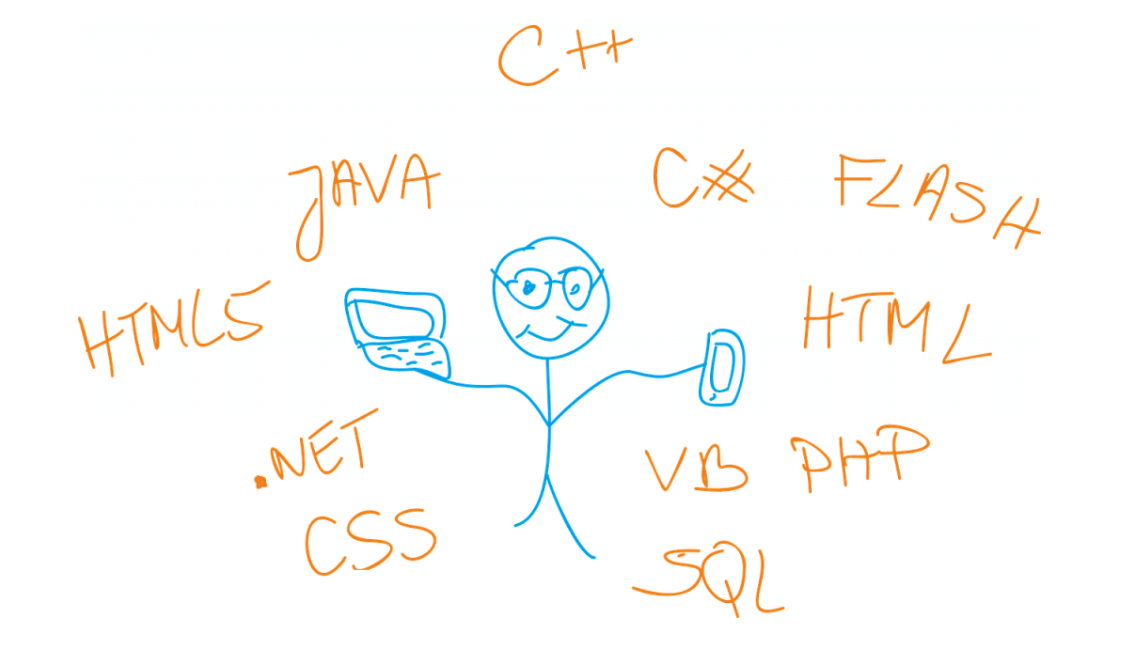 C++
JAVA
C#
FLASH
HTML5
HTML
.NET
VB
PHP
CSS
SQL